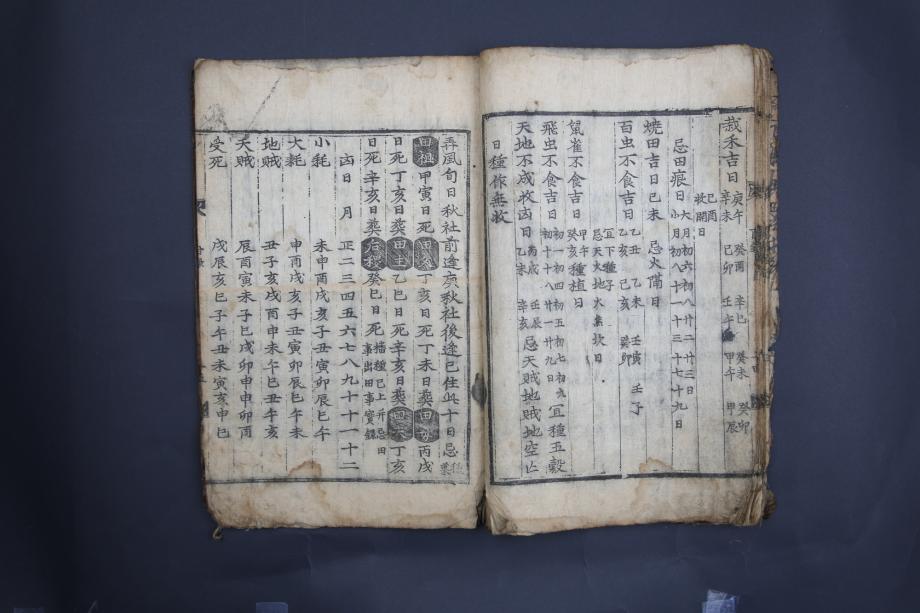 栽禾吉日 庚午 癸酉 辛巳 癸未 癸卯
辛未 己卯 壬午 甲午 甲辰
己酉
收開日
忌田痕日 大月初六初八廿二廿三日
小月初八十一十三十七十九日
燒田吉日己未 忌火隔日
百虫不食吉日 乙丑 乙未 壬寅 壬子
乙亥 己亥 癸卯
鼠雀不食吉日 宜下種子
忌天火地火無收日
甲午
癸亥種植日
飛虫不食吉日 初一初四初五初七初九 宜種五穀
初十一初八廿一廿九日
天地不成收凶日 丙戌 壬辰 忌天賊地賊地空亡
乙未 辛亥
日種作無收
弄風旬日秋社前逢庚秋社後逢己住此十日忌
田祖甲寅日死 丁亥日死丁未日葬田母丙戌
日死丁亥日葬田主乙巳日死辛亥日葬 丁亥
日死辛亥日葬后稷癸巳日死 播種已上并忌田
事出田事實錄
凶日 月 正二三四五六七八九十十一十二
小耗 未申酉戌亥子丑寅卯辰巳午
大耗 申酉戌亥子丑寅卯辰巳午未
地賊 丑子亥戌酉申未午巳丑午亥
天賊 辰酉寅未子巳戌卯申卯酉
受死 戌辰亥巳子午丑未寅亥申巳